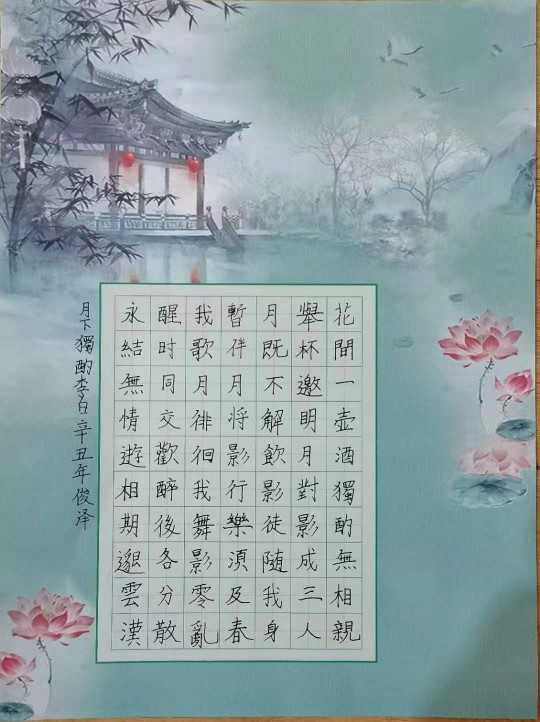 花間一壺酒獨酌無相親
舉杯邀明月對影成三人
月既不解飲影徒随我身
暫伴月將影行樂須及春
我歌月徘徊我舞影零亂
醒时同交歡醉後各分散
永結無情遊相期邈雲漢
月下獨酌李白辛丑年俊泽